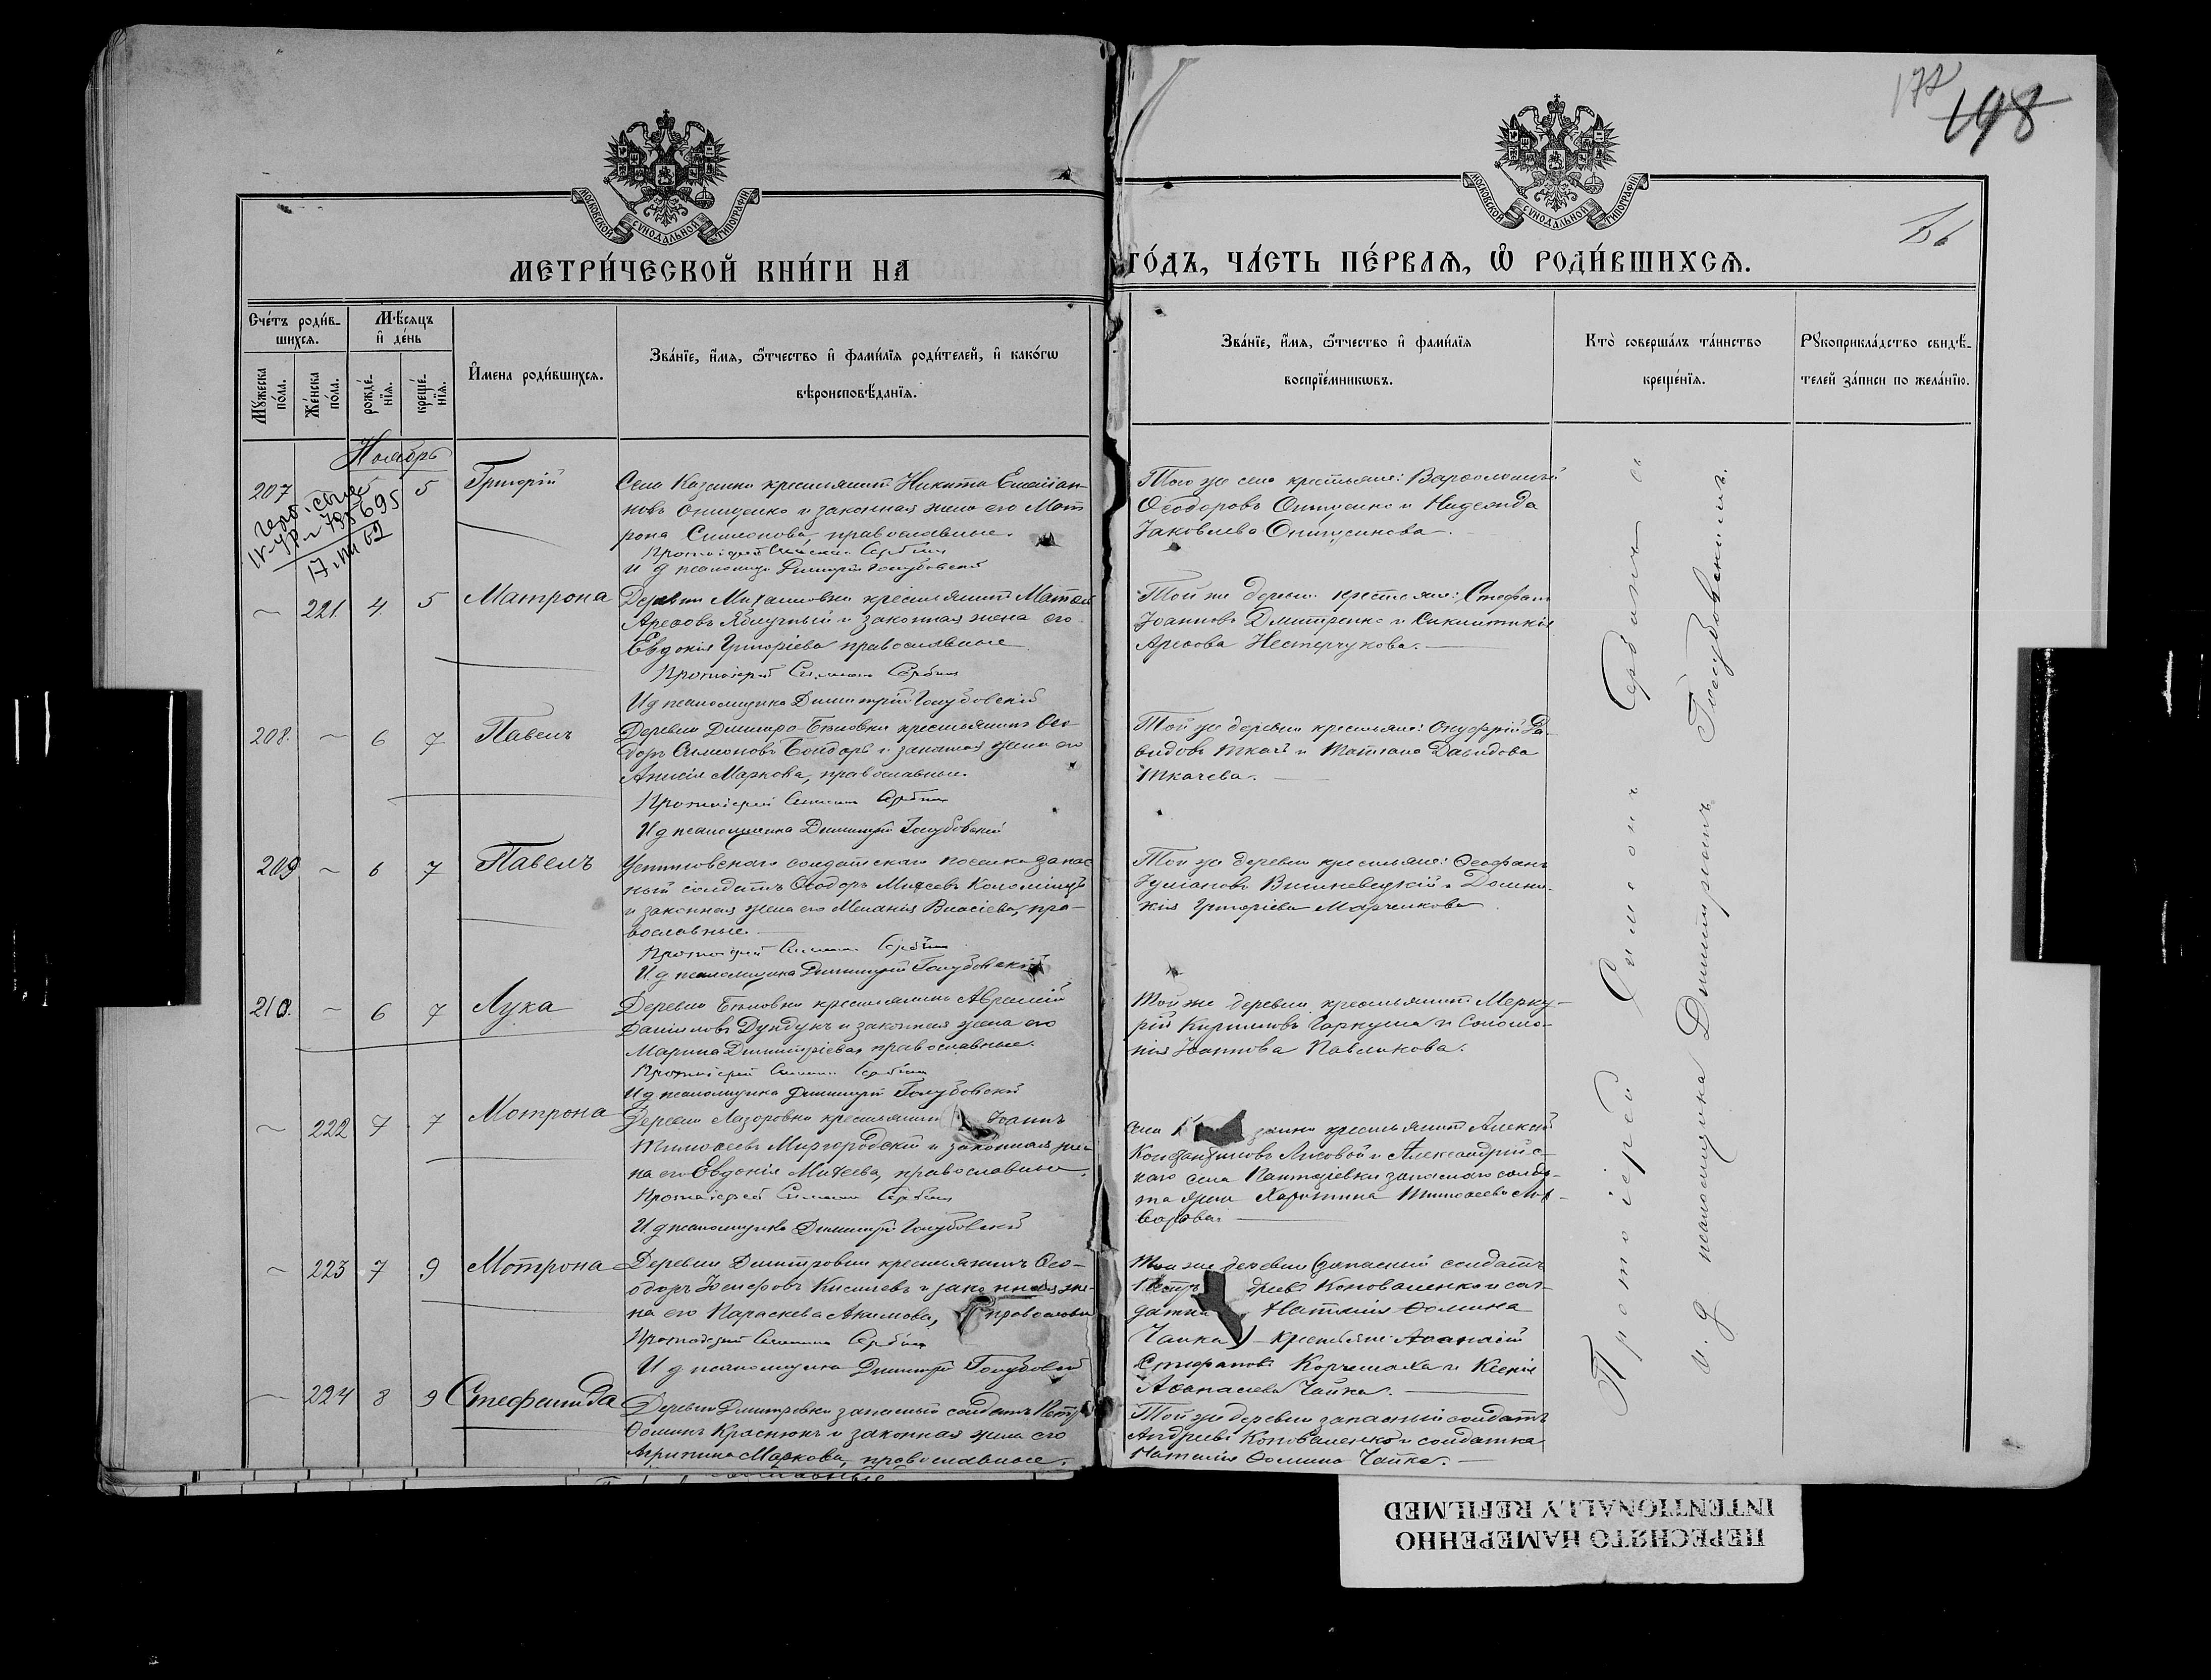 172
198
МОСКОВСКОЙ СУНОДАЛЬНОЙ ТИПОГРАФІИ
МОСКОВСКОЙ СУНОДАЛЬНОЙ ТИПОГРАФІИ
МЕТРИ́ЧЕСКОЙ КНИ́ГИ НА
ГО́ДЪ, ЧА́СТЬ ПЕ́РВАЯ, Ѿ РОДИ́ВШИХСЯ.
Сче́тъ роди́в-
шихся.
Му́жеска по́ла.
Же́нска по́ла.
Мѣ́сяцъ и де́нь
рожде́-нїя.
креще́-нїя.
И́мена роди́вшихся.
Зва́нїе, и́мя, ѻ́тчество и фами́лїя роди́телей, и како́гѡ
вѣроисповѣ́данїя.
Зва́нїе, и́мя, ѻ́тчество и фами́лїя
воспрїе́мникѡвъ.
Кто̀ соверша́лъ та́инство
креще́нїя.
Рꙋкоприкла́дство свидѣ́-
телей за́писи по жела́нїю.
Ноябрь
207 5 5 Григорій
Села Казанки крестьянинъ Никита Емеліан-
новъ Онищенко и законная жена его Мат
рона Симеонова, православные.
Протоіерей Симеонъ Сербинъ
И д псаломщика Димитрій Голубовскій
Того же села крестьяне: Варфоломей
Ѳеодоровъ Онищенко и Надежда
Іаковлева
17 VIII 62
– 221 4 5 Матрона
Деревни Михайловки крестьянинъ Матѳей
Ареѳовъ Яблучный и законная жена его
Евдокія Григоріева православные
Протоіерей Симеонъ Сербинъ
И д псаломщика Димитрій Голубовскій
Той же деревни крестьяне: Стефанъ
Іоанновъ Дмитренко и
Ареѳова Нестерчукова.
208. – 6 7 Павелъ
Деревни Димитро-Бѣловки крестьянинъ Ѳео-
доръ Симоновъ Бондарь и законная жена его
Анисія Маркова, православные.
Протоіерей Симеонъ Сербинъ
И д псаломщика Димитрій Голубовскій
Той же деревни крестьяне: Онуфрій Да-
видовъ Ткачъ и Татіана Давидова
Ткачева.
209 – 6 7 Павелъ
солдатскаго поселка запас
ный солдатъ Ѳеодоръ Михеевъ Коломіецъ
и законная жена его Меланія Власіева, пра-
вославные.
Протоіерей Симеонъ Сербинъ
И д псаломщика Димитрій Голубовскій
Той же деревни крестьяне: Ѳеофанъ
Вишневецкій и Домни-
кія Григоріева Марченкова
210. – 6 7 Лука
Деревни Бѣловки крестьянинъ Аврамій
Даніиловъ Дундукъ и законная жена его
Марина Димитріева, православные.
Протоіерей Симеонъ Сербинъ
И д псаломщика Димитрій Голубовскій
Той же деревни крестьянинъ Мерку-
рій Кирилловъ Гаркуша и Соломо-
нія Іоаннова Павликова.
– 222 7 7 Мотрона
Деревни Лазоровки крестьянинъ Іоаннъ
Тимоѳеевъ Миргородскій и законная же
на его Евдокія Михеева, православные.
Протоіерей Симеонъ Сербинъ
И д псаломщика Димитрій Голубовскій
села К занки крестьянинъ Алексій
Константиновъ Лисовой и Александрійс-
каго села Пантазіевки запаснаго солда-
та жена Харитина Тимоѳеева
– 223 7 9 Мотрона
Деревни Дмитровки крестьянинъ Ѳео-
доръ Іосифовъ Киселевъ и законная же-
на его Параскева Акимова, православн
Протоіерей Симеонъ Сербинъ
И д псаломщика Димитрій Голубовскій
Той же деревни (запасный солдатъ
Петръ дреевъ Коноваленко и сол-
датка Наталія Ѳомина
Чайка) – крестьяне: Аѳанасій
Стефановъ и Ксенія
Аѳанасіева Чайка.
– 224 8 9 Стефанида
Деревни Дмитровки запасный солдатъ Петръ
Ѳоминъ Краснюкъ и законная жена его
Агрипина Маркова, православные.
Той же деревни запасный солдатъ
Андреевъ Коноваленко и солдатка
Наталія Ѳомина Чайка.
Протоіерей Симеонъ Сербинъ съ
и. д псаломщика Димитріемъ Голубовскимъ.
ПЕРЕСНЯТО НАМЕРЕННО
INTENTIONALLY REFILMED